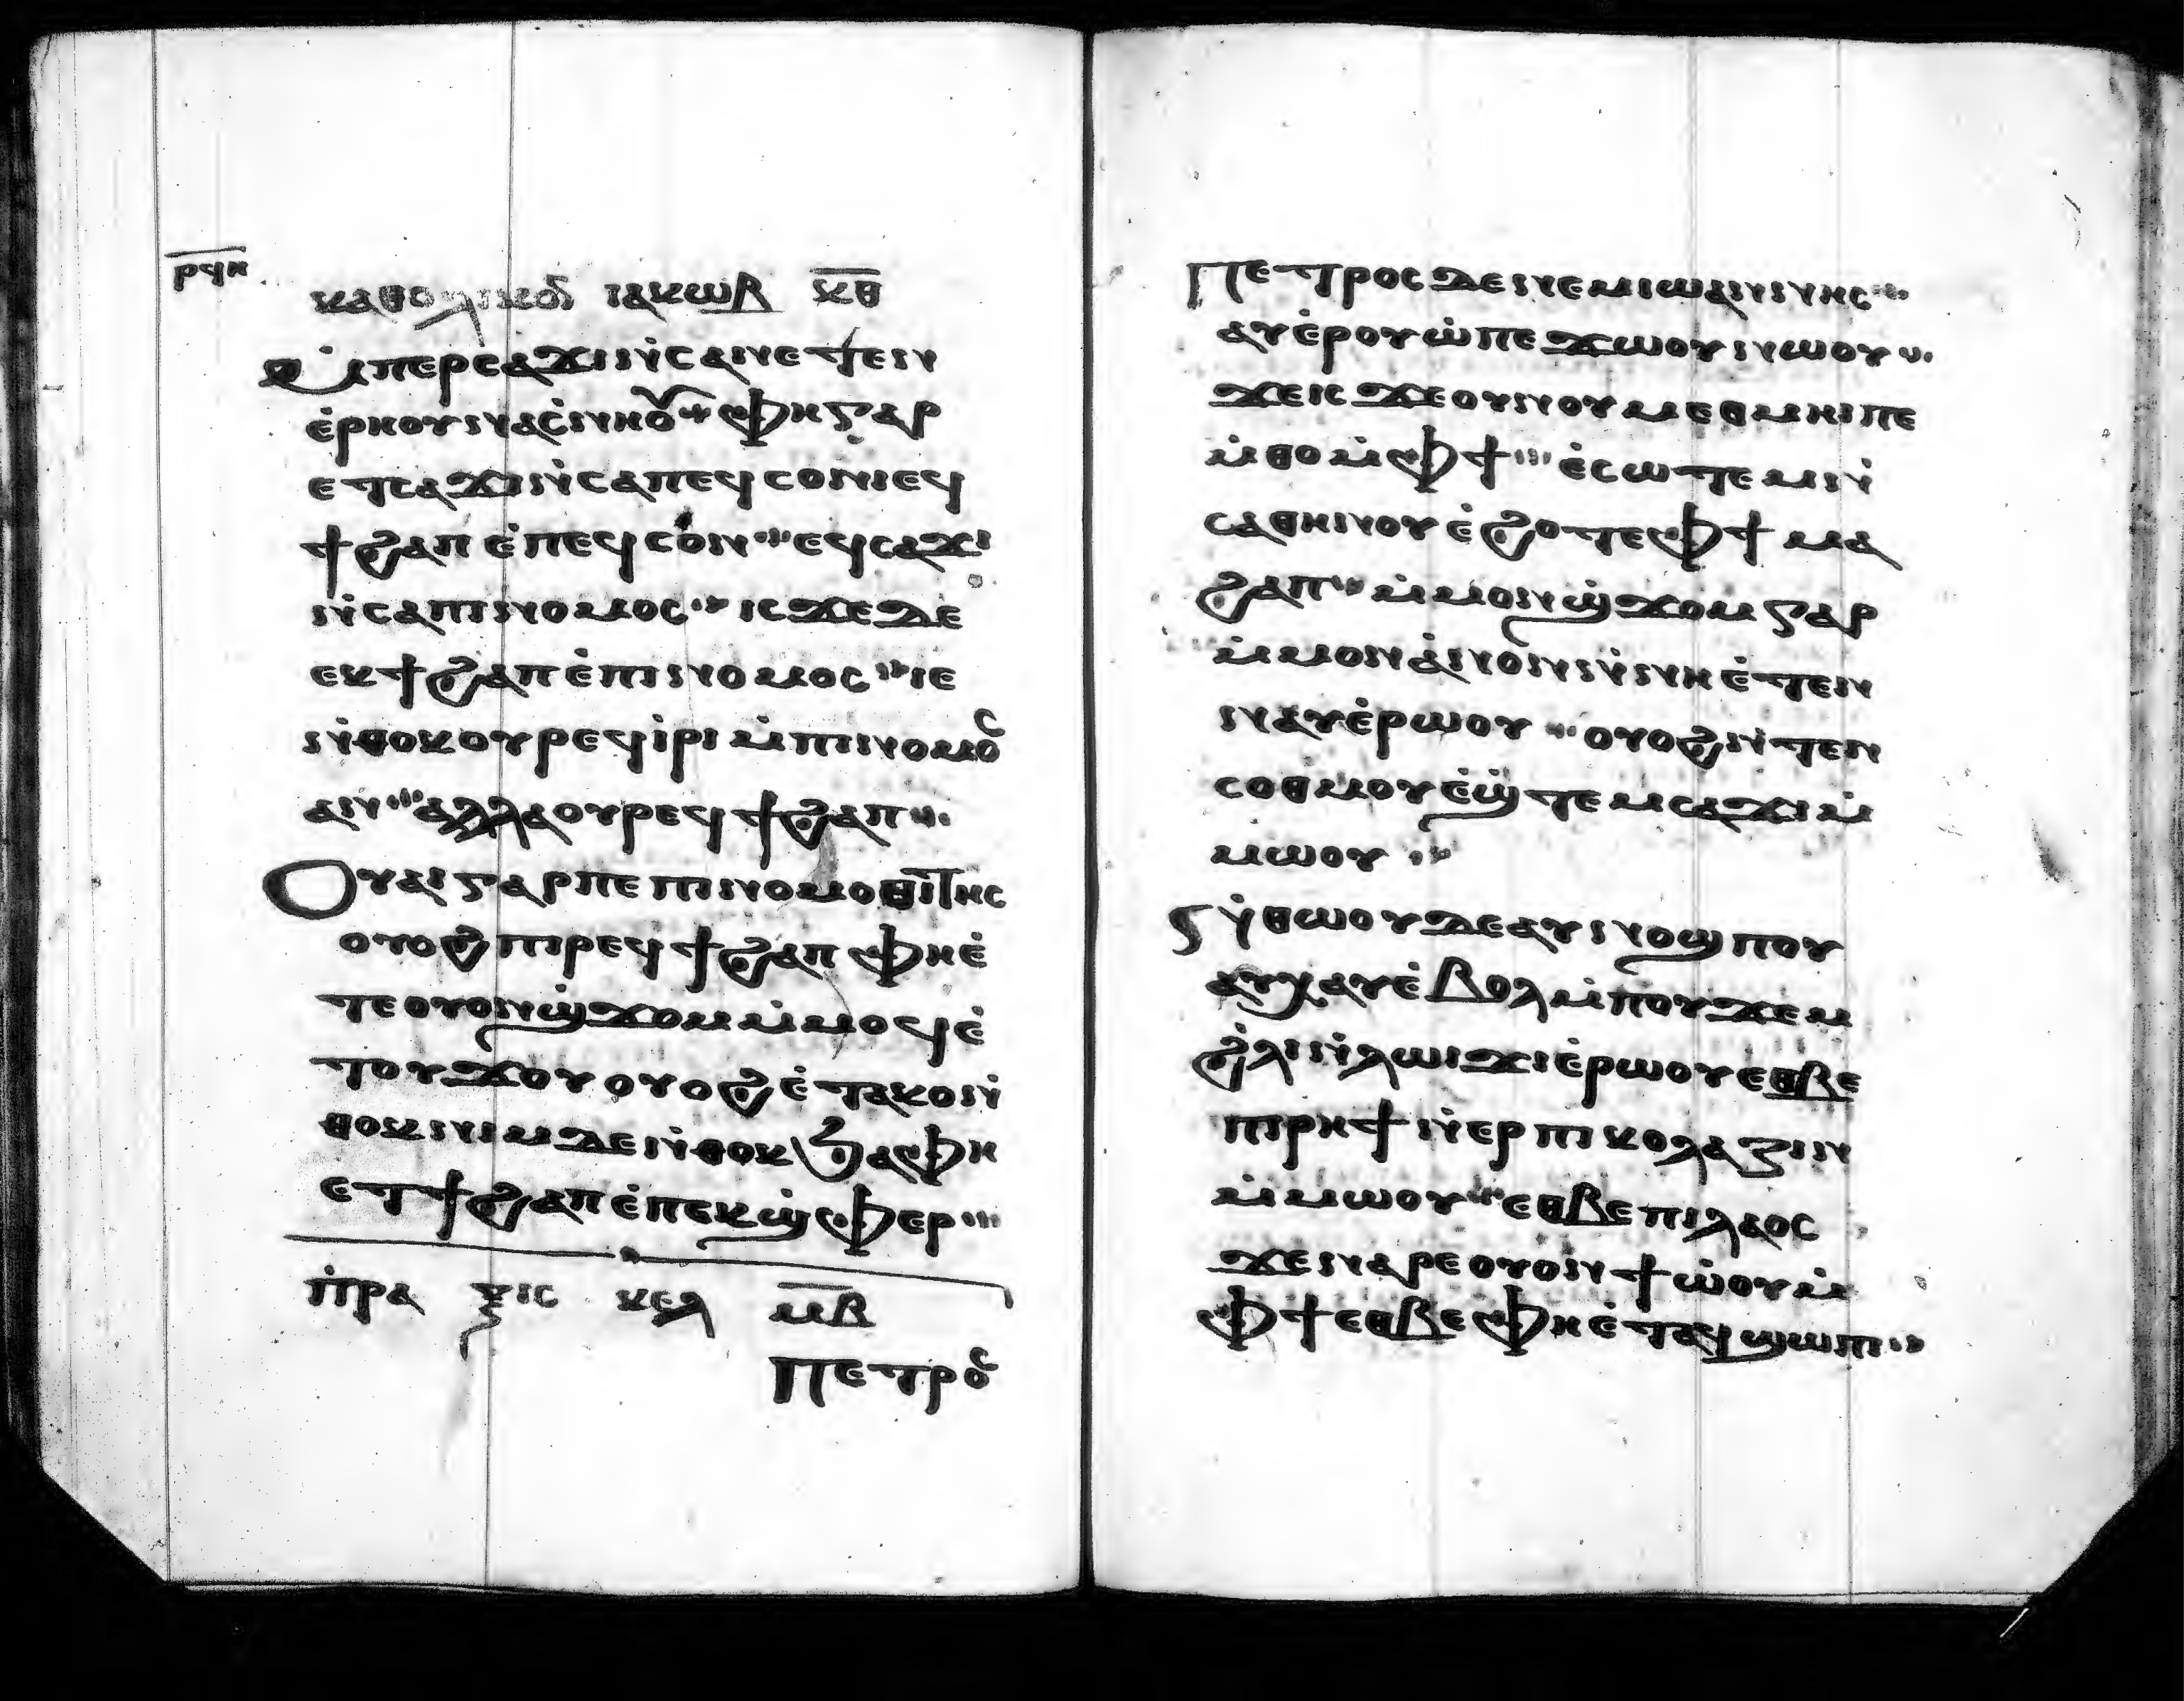 ⲣϥⲏ
ⲕⲁⲑⲟⲗⲓⲕⲟⲛ ⲓⲁⲕⲱⲃ ⲕ̅ⲑ̅
ⲙ̇ⲡⲉⲣⲥⲁϫⲓ ⲛ̇ⲥⲁ ⲛⲉⲧⲉⲛ
ⲉ̇ⲣⲏⲟⲩ ⲛⲁⲥ̇ⲛⲏⲟⲩ ⲫⲏ ⲅⲁⲣ
ⲉⲧⲥⲁϫⲓ ⲛ̇ⲥⲁ ⲡⲉϥⲥⲟⲛ ⲓⲉϥ
ϯϩⲁⲡ ⲉ̇ⲡⲉϥⲥⲟⲛ ⲉϥⲥⲁϫⲓ
ⲛ̇ⲥⲁ ⲡⲓⲛⲟⲙⲟⲥ ⲓⲥϫⲉ ⲇⲉ
ⲉⲕϯϩⲁⲡ ⲉ̇ⲡⲓⲛⲟⲙⲟⲥ ⲓⲉ
ⲛ̇ⲑⲟⲕ ⲟⲩⲣⲉϥⲓ̇ⲣⲓ ⲙ̇ⲡⲓⲛⲟⲙⲟⲥ
ⲁⲛ ⲁⲗⲗⲁ ⲟⲩⲣⲉϥϯϩⲁⲡ
Ⲟⲩⲁⲓ ⲅⲁⲣ ⲡⲉ ⲡⲓⲛⲟⲙⲟⲑⲓⲧⲏⲥ
ⲟⲩⲟϩ ⲡⲓⲣⲉϥϯϩⲁⲡ ⲫⲏⲉ̇
ⲧⲉ ⲟⲩⲟⲛϣ̇ϫⲟⲙ ⲙ̇ⲙⲟϥ ⲉ̇
ⲧⲟⲩϫⲟⲩ ⲟⲩⲟϩ ⲉ̇ⲧⲁⲕⲟ ⲛ̇
ⲑⲟⲕ ⲛⲓⲙ ⲇⲉ ⲛ̇ⲑⲟⲕ ϧⲁ ⲫⲏ
ⲉⲧϯϩⲁⲡ ⲉ̇ⲡⲉⲕϣ̇ⲫⲉⲣ
ⲡ̇ⲣⲁ ⲝⲓⲥ ⲕⲉⲗ ⲙ̅ⲃ̅
ⲡⲉⲧⲣⲟⲥ
Ⲡⲉⲧⲣⲟⲥ ⲇⲉ ⲛⲉⲙ ⲓⲱⲁⲛⲛⲏⲥ
ⲁⲩⲉ̇ⲣⲟⲩⲱ̇ ⲡⲉϫⲱⲟⲩ ⲛⲱⲟⲩ
ϫⲉ ⲓⲥϫⲉ ⲟⲩⲛⲟⲩⲙⲉⲑⲙⲏⲓ ⲡⲉ
ⲙ̇ⲑⲟ ⲙ̇ⲫϯ ⲉ̇ⲥⲱⲧⲉⲙ ⲛ̇
ⲥⲁ ⲑⲏⲛⲟⲩ ⲉ̇ϩⲟⲧⲉ ⲫϯ ⲙⲁ
ϩⲁⲡ ⲙ̇ⲙⲟⲛϣ̇ϫⲟⲙ ⲅⲁⲣ
ⲙ̇ⲙⲟⲛ ⲁ̇ⲛⲟⲛ ⲛ̇ⲛⲏ ⲉ̇ⲧⲉⲛ
ⲛⲁⲩ ⲉ̇ⲣⲱⲟⲩ ⲟⲩⲟϩ ⲛ̇ⲧⲉⲛ
ⲥⲟⲑⲙⲟⲩ ⲉ̇ϣ̇ⲧⲉⲙⲥⲁϫⲓ ⲙ̇
ⲙⲱⲟⲩ
Ⲛ̇ⲑⲱⲟⲩ ⲇⲉ ⲁⲩⲛⲟϣⲡⲟⲩ
ⲁⲩⲭⲁⲩ ⲉ̇ⲃⲟⲗ ⲙ̇ⲡⲟⲩϫⲉⲙ
ϩ̇ⲗⲓ ⲛ̇ⲗⲱⲓϫⲓ ⲉ̇ⲣⲱⲟⲩ ⲉⲑⲃⲉ
ⲡⲓⲣⲏϯ ⲛ̇ⲉⲣⲡⲓⲕⲟⲗⲁⲍⲓⲛ
ⲙ̇ⲙⲱⲟⲩ ⲉⲑⲃⲉ ⲡⲓⲗⲁⲟⲥ
ϫⲉ ⲛⲁⲣⲉ ⲟⲩⲟⲛ ϯⲱ̇ⲟⲩ ⲙ̇
ⲫϯ ⲉⲑⲃⲉ ⲫⲏ ⲉ̇ⲧⲁϥϣⲱⲡⲓ